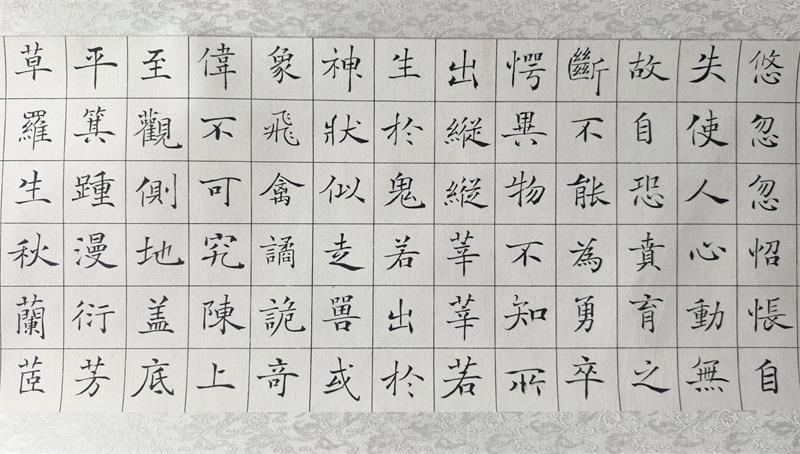 悠忽忽怊悵自
失使人心動無
故自恐賁育之
斷不能為勇卒
愕異物不知所
出縱縱莘莘若
生於鬼若出於
神狀似走嘼或
象飛禽譎詭奇
偉不可究陳上
至觀側地盖底
平箕踵漫衍芳
草羅生秋蘭茝